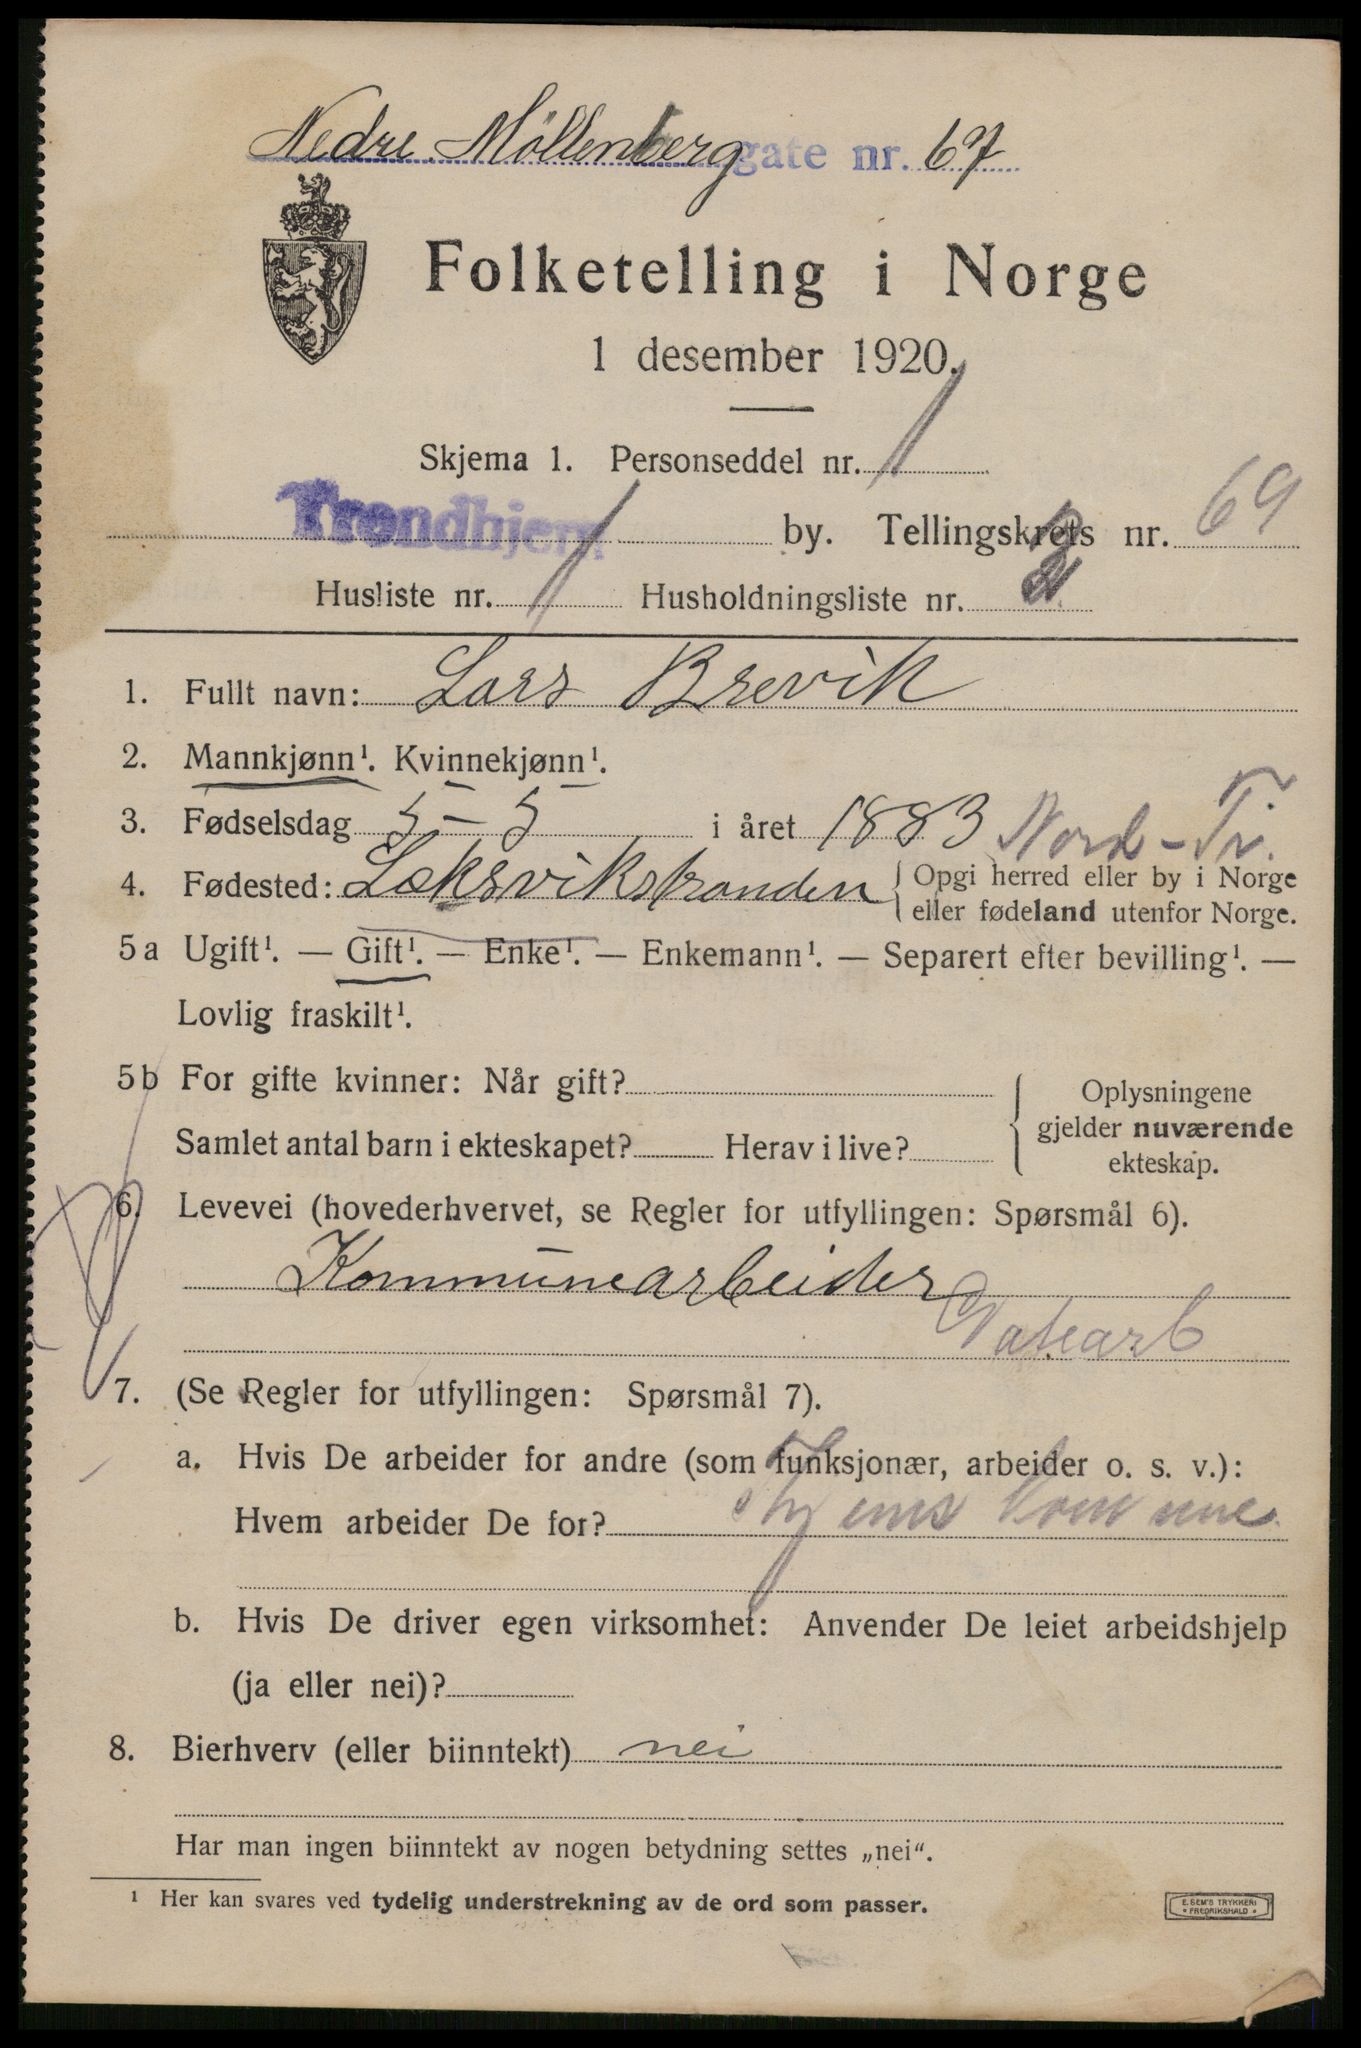 Nedre Möllenberg gate nr. 67
Folketelling i Norge
1 desember 1920.
Skjema 1. Personseddel nr. 1
Trondhjem by. Tellingskrets nr. 69
Husliste nr. 1 Husholdningsliste nr. 2
1. Fullt navn: Lars Brevik
2. Mannkjønn¹. Kvinnekjønn¹.
3. Fødselsdag 5-5 i året 1883 Nord-Tr.
4. Fødested: Leksvikstranden { Opgi herred eller by i Norge
eller fødeland utenfor Norge.
5a Ugift¹. — Gift¹. — Enke¹. — Enkemann¹. — Separert efter bevilling¹. —
Lovlig fraskilt¹.
5b For gifte kvinner: Når gift?
Samlet antal barn i ekteskapet? Herav i live?
{ Oplysningene
gjelder nuværende
ekteskap.
6. Levevei (hovederhvervet, se Regler for utfyllingen: Spørsmål 6).
Kommunearbeider
Gatearb
7. (Se Regler for utfyllingen: Spørsmål 7).
a. Hvis De arbeider for andre (som funksjonær, arbeider o. s. v.):
Hvem arbeider De for? Thjems Kommune
b. Hvis De driver egen virksomhet: Anvender De leiet arbeidshjelp
(ja eller nei)?
8. Bierhverv (eller biinntekt) nei
Har man ingen biinntekt av nogen betydning settes „nei“.
¹ Her kan svares ved tydelig understrekning av de ord som passer.
E. SEM'S TRYKKERI
* FREDRIKSHALD *